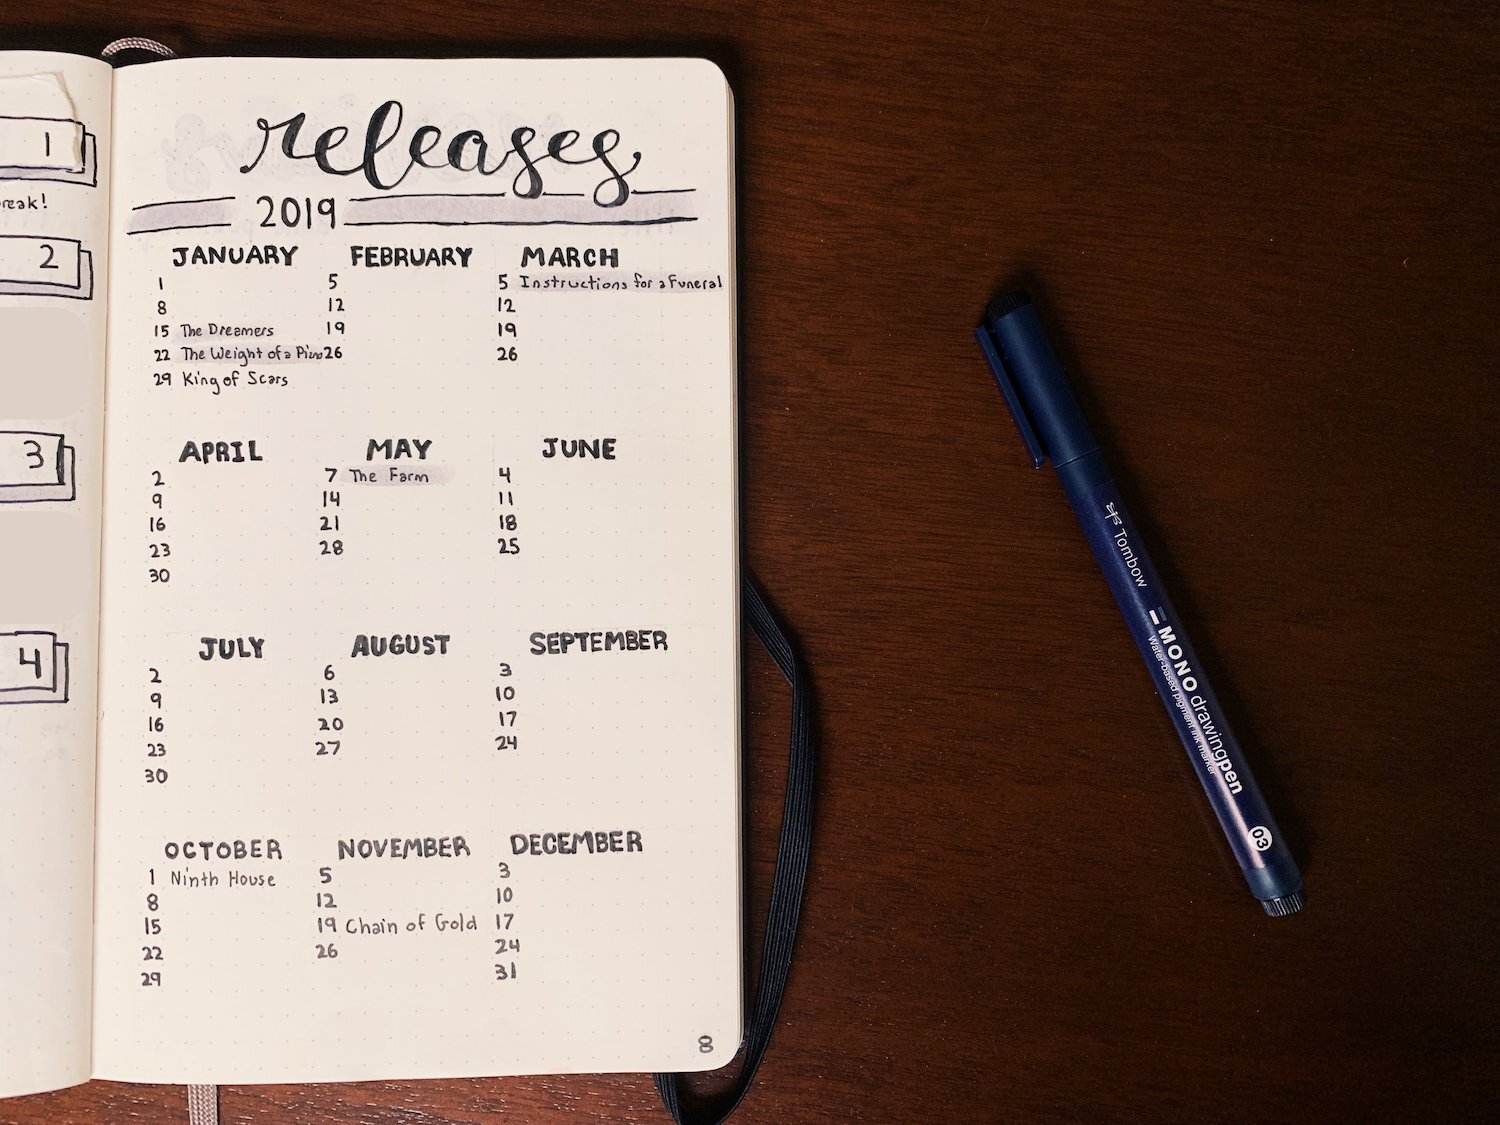 1
reak!
2
3
4
releases
2019
JANUARY
1
8
15 The Dreamers
22 The Weight of a Piano
29 King of Scars
FEBRUARY
5
12
19
26
MARCH
5 Instructions for a Funeral
12
19
26
APRIL
2
9
16
23
30
MAY
7 The Farm
14
21
28
JUNE
4
11
18
25
JULY
2
9
16
23
30
AUGUST
6
13
20
27
SEPTEMBER
3
10
17
24
OCTOBER
1 Ninth House
8
15
22
29
NOVEMBER
5
12
19 Chain of Gold
26
DECEMBER
3
10
17
24
31
8
Tombow
MONO drawingpen
Water-based pigment ink marker
03